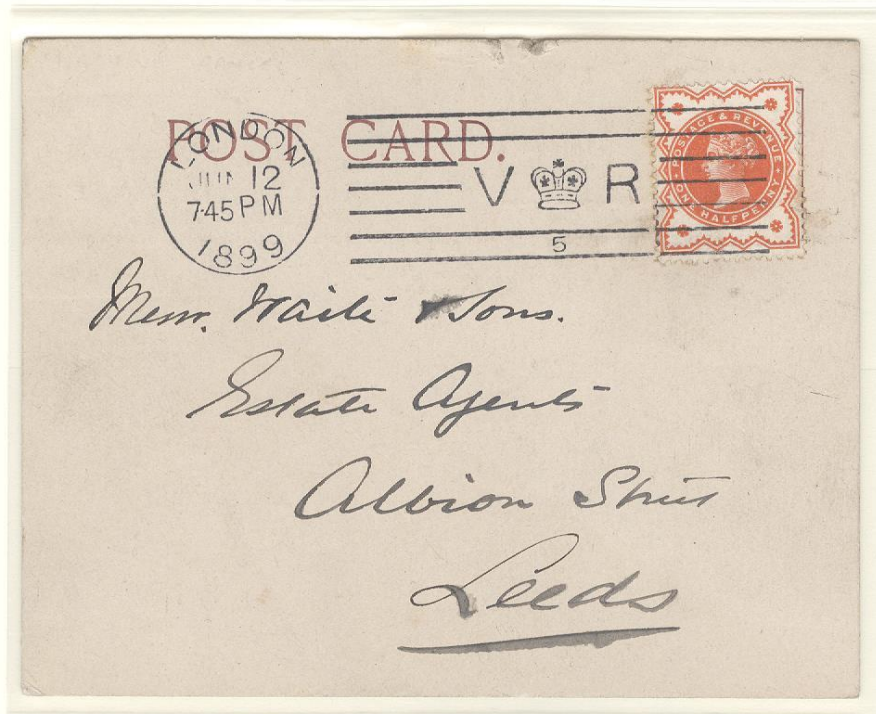 POST CARD.
LONDON
JUN 12
7·45 PM
1899
V R
5
POSTAGE & REVENUE
ONE HALFPENNY
Messrs. Waite & Sons.
Estate Agents
Albion Street
Leeds